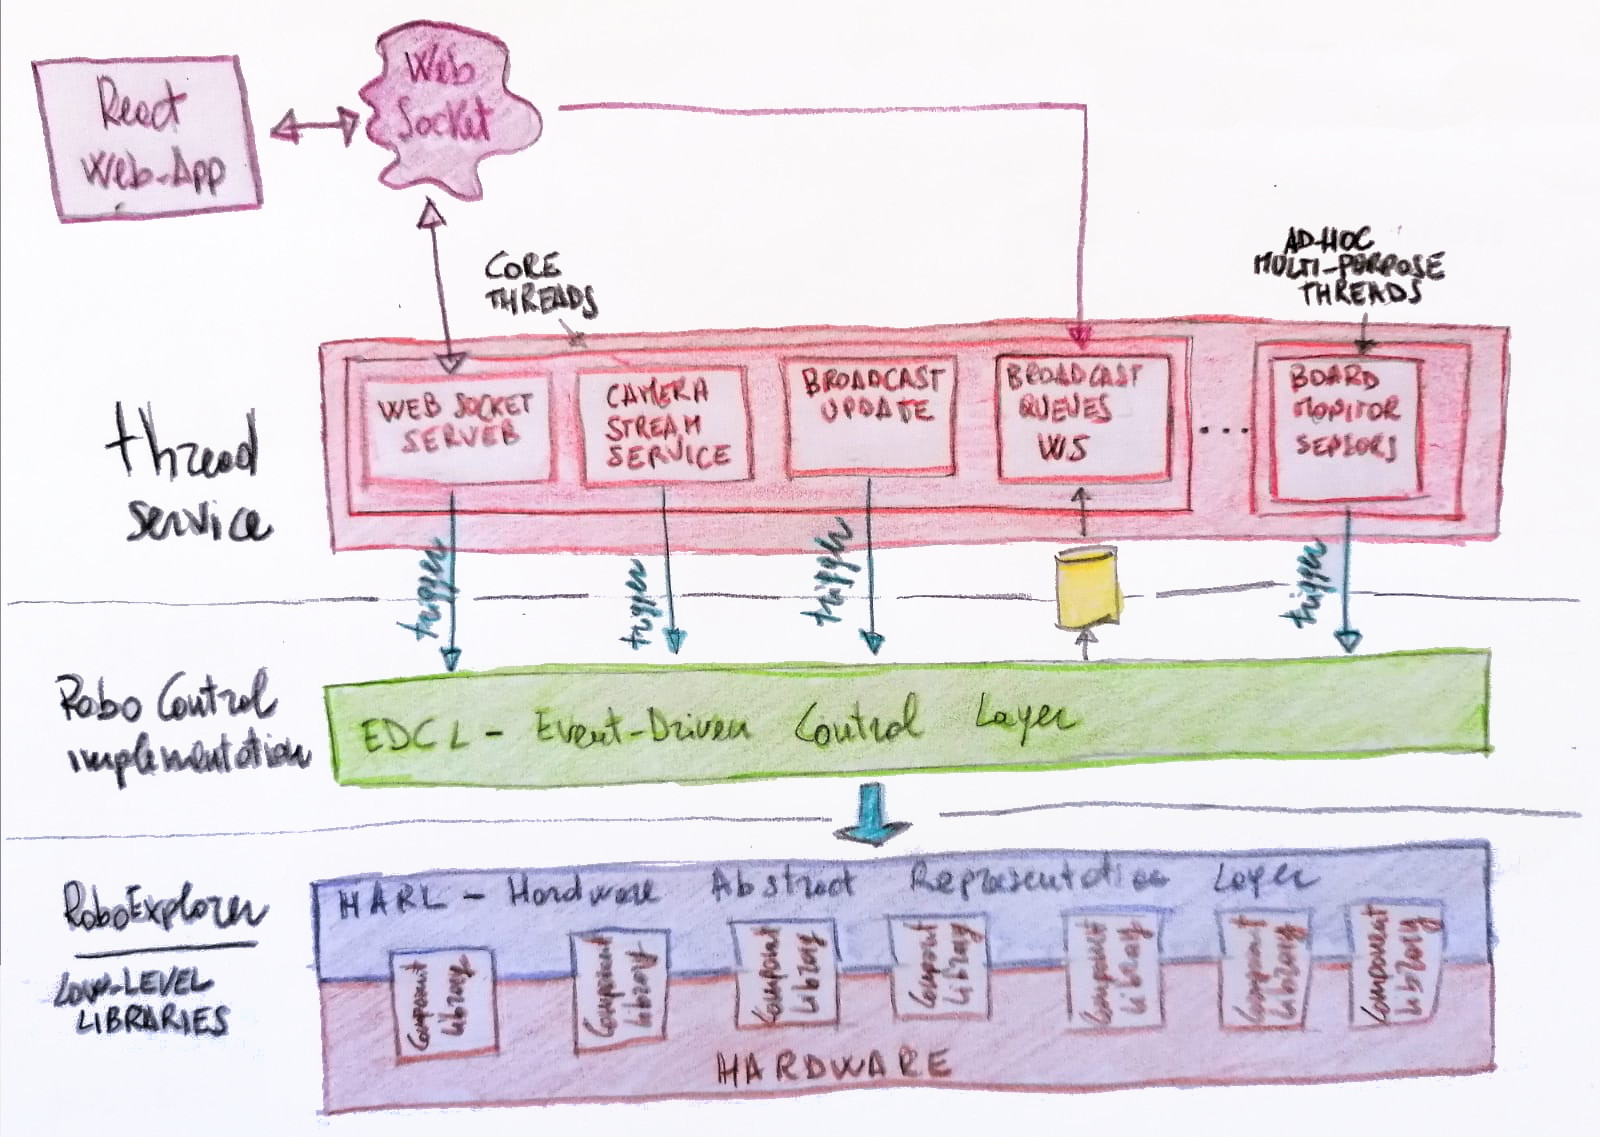 React
Web-App
Web
Socket
CORE
THREADS
AD-HOC
MULTI-PORPOSE
THREADS
WEB SOCKET
SERVER
CAMERA
STREAM
SERVICE
BROADCAST
UPDATE
BROADCAST
QUEUES
WS
...
BOARD
MONITOR
SENSORS
thread
service
trigger
trigger
trigger
trigger
Robo Control
implementation
EDCL - Event-Driven Control Layer
RoboExplorer
LOW-LEVEL
LIBRARIES
HARL - Hardware Abstract Representation Layer
Component
Library
Component
Library
Component
Library
Component
Library
Component
Library
Component
Library
Component
Library
HARDWARE